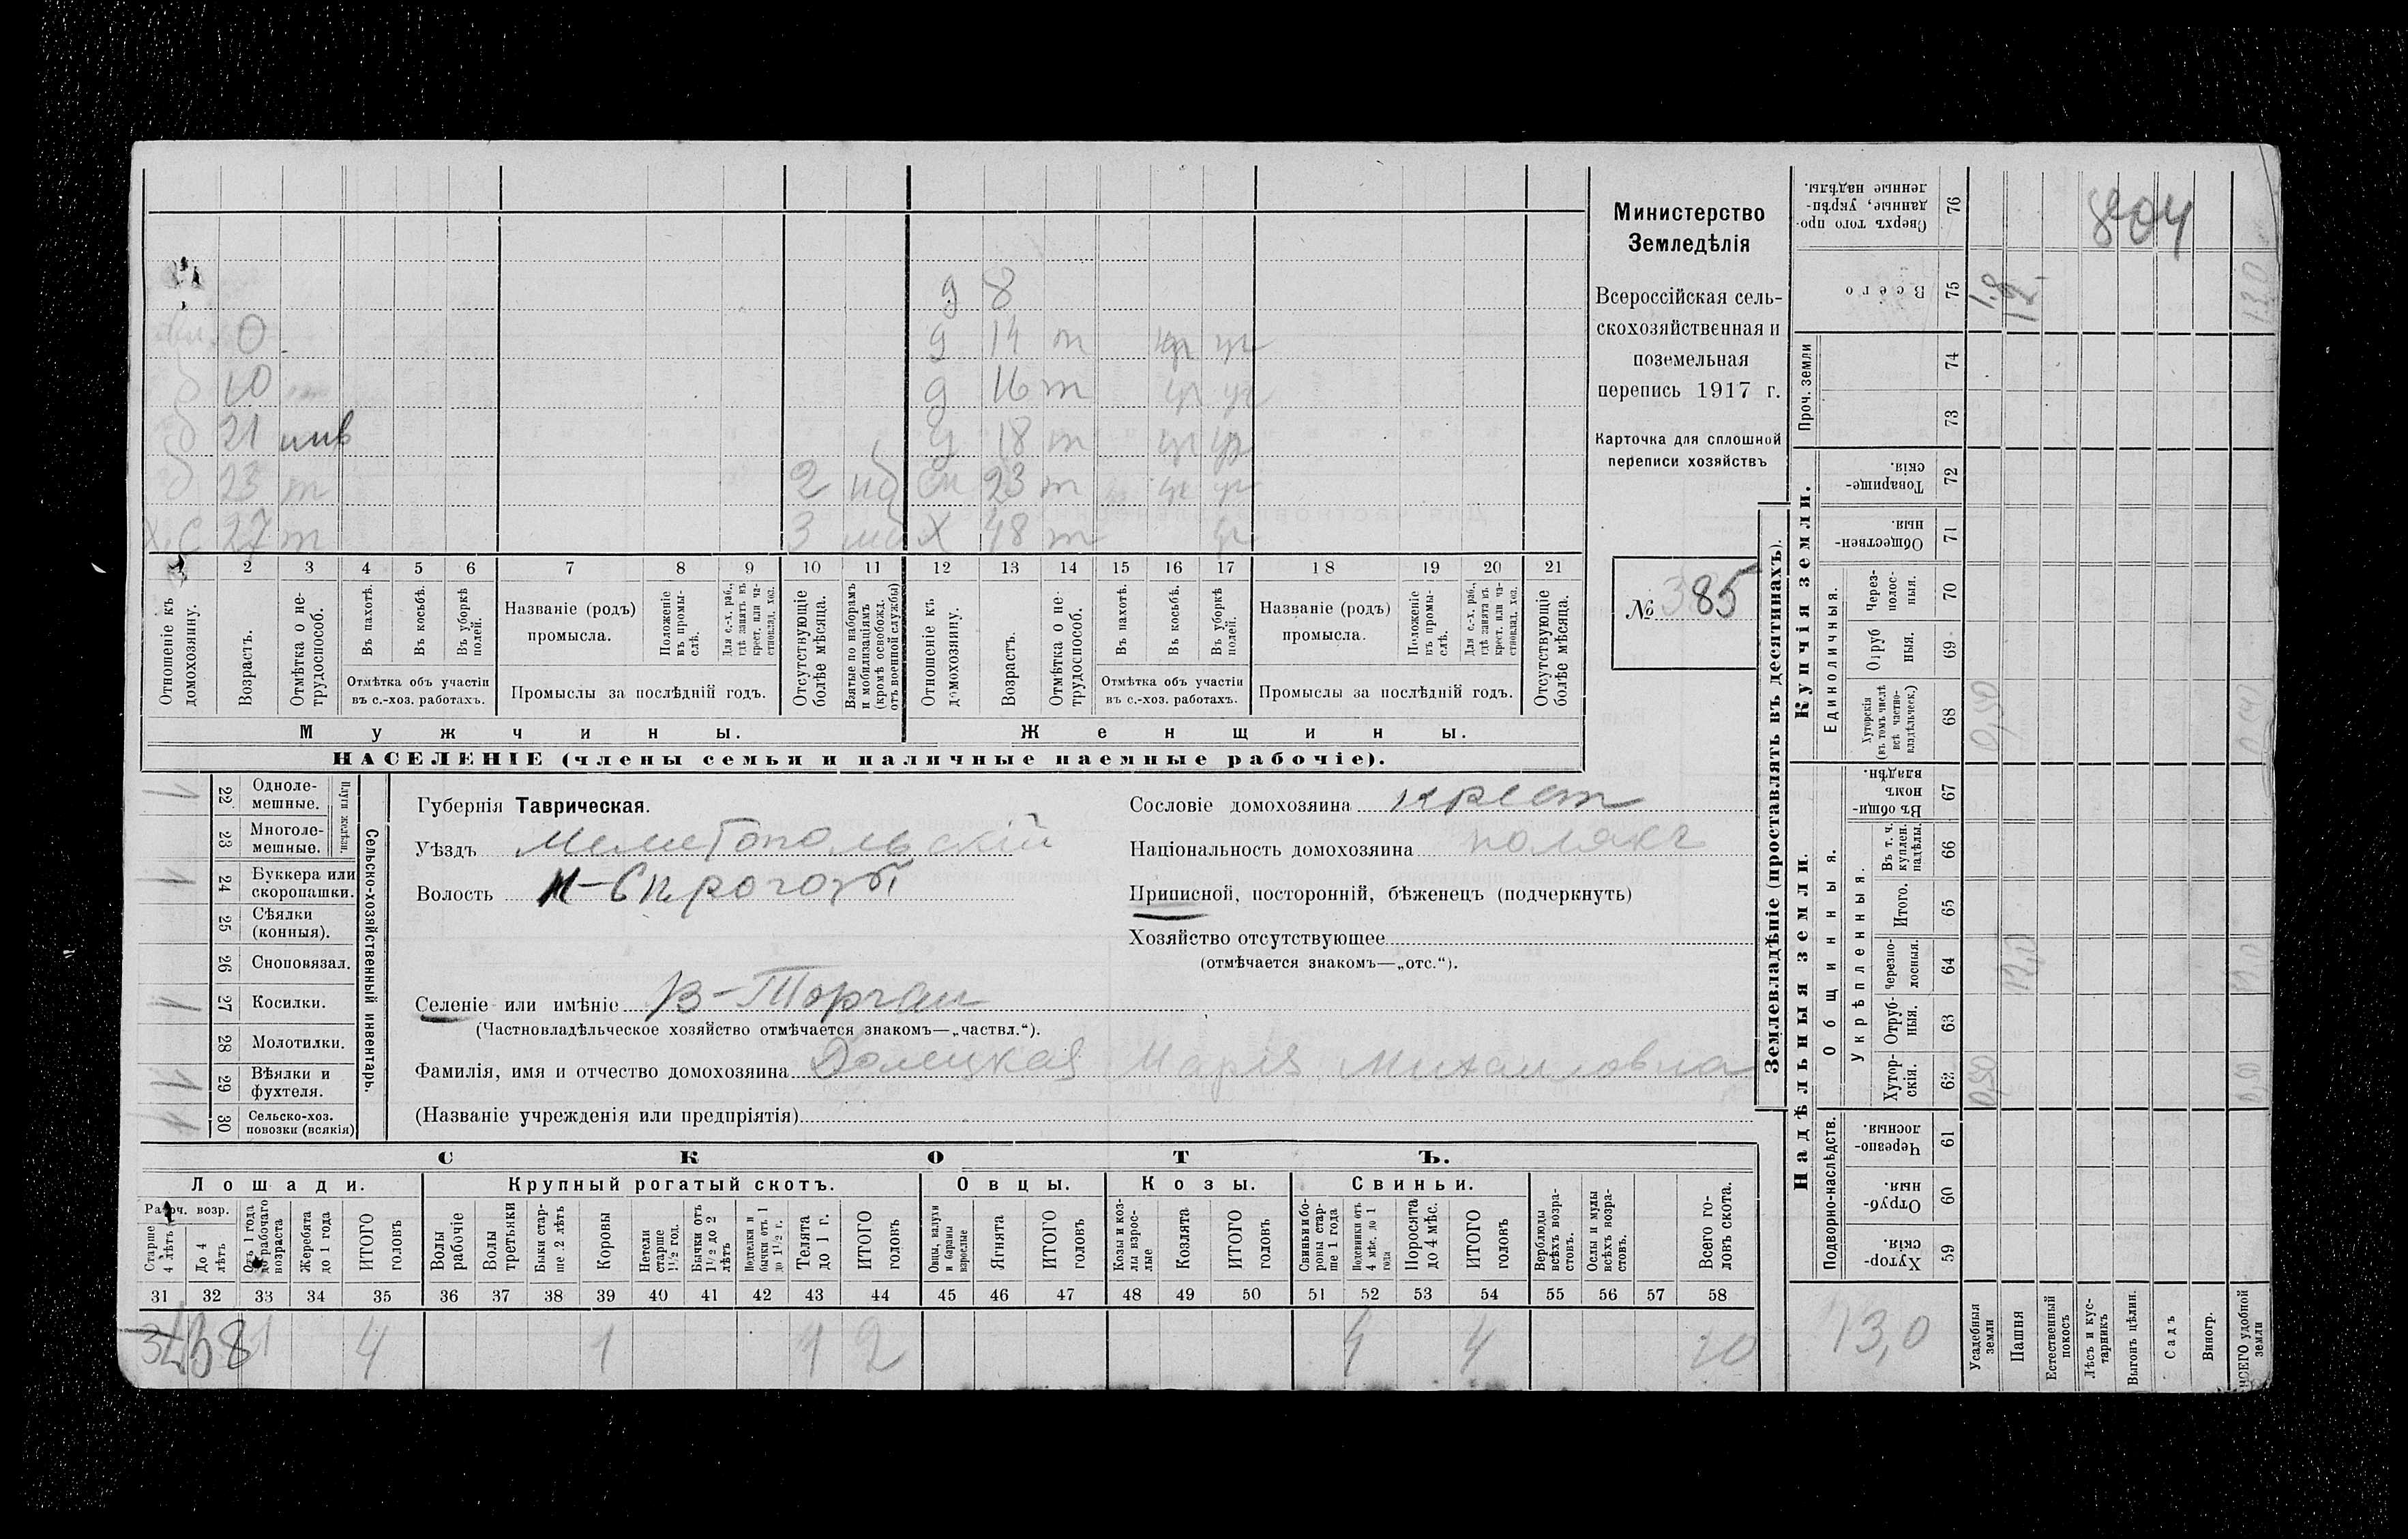 804
д 8
0 д 14 т ур ур
10 д 16 т ур ур
21 инв д 18 т ур ур
23 т 2 мб 23 т ур ур
Х. С 27 т 3 мб Х 48 т ур
1 2 3 4 5 6 7 8 9 10 11 12 13 14 15 16 17 18 19 20 21
Отношеніе къ домохозяину.
Возрастъ.
Отмѣтка о нетрудоспособ.
Въ пахотѣ.
Въ косьбѣ.
Въ уборкѣ полей.
Отмѣтка объ участіи въ с.-хоз. работахъ.
Названіе (родъ) промысла.
Положеніе въ промыслѣ.
Для с.-х. раб., гдѣ занятъ въ крест. или частновлад. хоз.
Промыслы за послѣдній годъ.
Отсутствующіе болѣе мѣсяца.
Взятые по наборамъ и мобилизаціямъ (кромѣ освобожд. отъ военной службы)
Отношеніе къ домохозяину.
Возрастъ.
Отмѣтка о нетрудоспособ.
Въ пахотѣ.
Въ косьбѣ.
Въ уборкѣ полей.
Отмѣтка объ участіи въ с.-хоз. работахъ.
Названіе (родъ) промысла.
Положеніе въ промыслѣ.
Для с.-х. раб., гдѣ занята въ крест. или частновлад. хоз.
Промыслы за послѣдній годъ.
Отсутствующіе болѣе мѣсяца.
Мужчины. Женщины.
НАСЕЛЕНІЕ (члены семьи и наличные наемные рабочіе).
Министерство
Земледѣлія
Всероссійская сель-
скохозяйственная и
поземельная
перепись 1917 г.
Карточка для сплошной
переписи хозяйствъ
№ 85
Сельско-хозяйственный инвентарь.
Плуги желѣзн.
22 Однолемешные. 1
23 Многолемешные.
24 Буккера или скоропашки. 1
25 Сѣялки (конныя).
26 Сноповязал.
27 Косилки. 1
28 Молотилки.
29 Вѣялки и фухтеля. 1
30 Сельско-хоз. повозки (всякія) 1
Губернія Таврическая.
Уѣздъ Мелитопольскій
Волость
Селеніе или имѣніе В-Торгаи
(Частновладѣльческое хозяйство отмѣчается знакомъ—„частвл.“).
Фамилія, имя и отчество домохозяина Долецкая Марія Михаиловна
(Названіе учрежденія или предпріятія)
Сословіе домохозяина крест
Національность домохозяина поляк
Приписной, посторонній, бѣженецъ (подчеркнуть)
Хозяйство отсутствующее
(отмѣчается знакомъ—„отс.“).
СКОТЪ.
Лошади. Крупный рогатый скотъ. Овцы. Козы. Свиньи.
Рабоч. возр.
Старше 4 лѣтъ
До 4 лѣтъ
Отъ 1 года до рабочаго возраста
Жеребята до 1 года
ИТОГО головъ
Волы рабочіе
Волы третьяки
Быки старше 2 лѣтъ
Коровы
Нетели старше 1½ год.
Бычки отъ 1½ до 2 лѣтъ
Подтелки и бычки отъ 1 до 1½ г.
Телята до 1 г.
ИТОГО головъ
Овцы, валухи и бараны взрослые
Ягнята
ИТОГО головъ
Козы и козлы взрослые
Козлята
ИТОГО головъ
Свиньи и бороны старше 1 года
Подсвинки отъ 4 мѣс. до 1 года
Поросята до 4 мѣс.
ИТОГО головъ
Верблюды всѣхъ возрастовъ.
Ослы и мулы всѣхъ возрастовъ.
Всего головъ скота.
31 32 33 34 35 36 37 38 39 40 41 42 43 44 45 46 47 48 49 50 51 52 53 54 55 56 57 58
4 1 1 2 4 4 10
Землевладѣніе (проставлять въ десятинахъ).
Надѣльныя земли. Купчія земли.
Подворно-наслѣдств.
59 Хуторскія
60 Отрубныя.
61 Черезполосныя.
Общинныя.
Укрѣпленныя.
62 Хуторскія. 0,50
63 Отрубныя.
64 Черезполосныя.
65 Итого.
66 Въ т. ч. куплен. надѣлы.
67 Въ общинномъ владѣн.
Единоличныя.
68 Хуторскія (въ томъ числѣ всѣ частновладѣльческ.) 0,50
69 Отрубныя.
70 Черезполосныя.
71 Общественныя.
72 Товарищескія.
Проч. земли
73
74
75 Всего
76 Сверхъ того проданные, укрѣпленные надѣлы.
13,0
Усадебныя земли
Пашня
Естественный покосъ
Лѣсъ и кустарникъ
Выгонъ цѣлин.
Садъ
Виногр.
ВСЕГО удобной земли